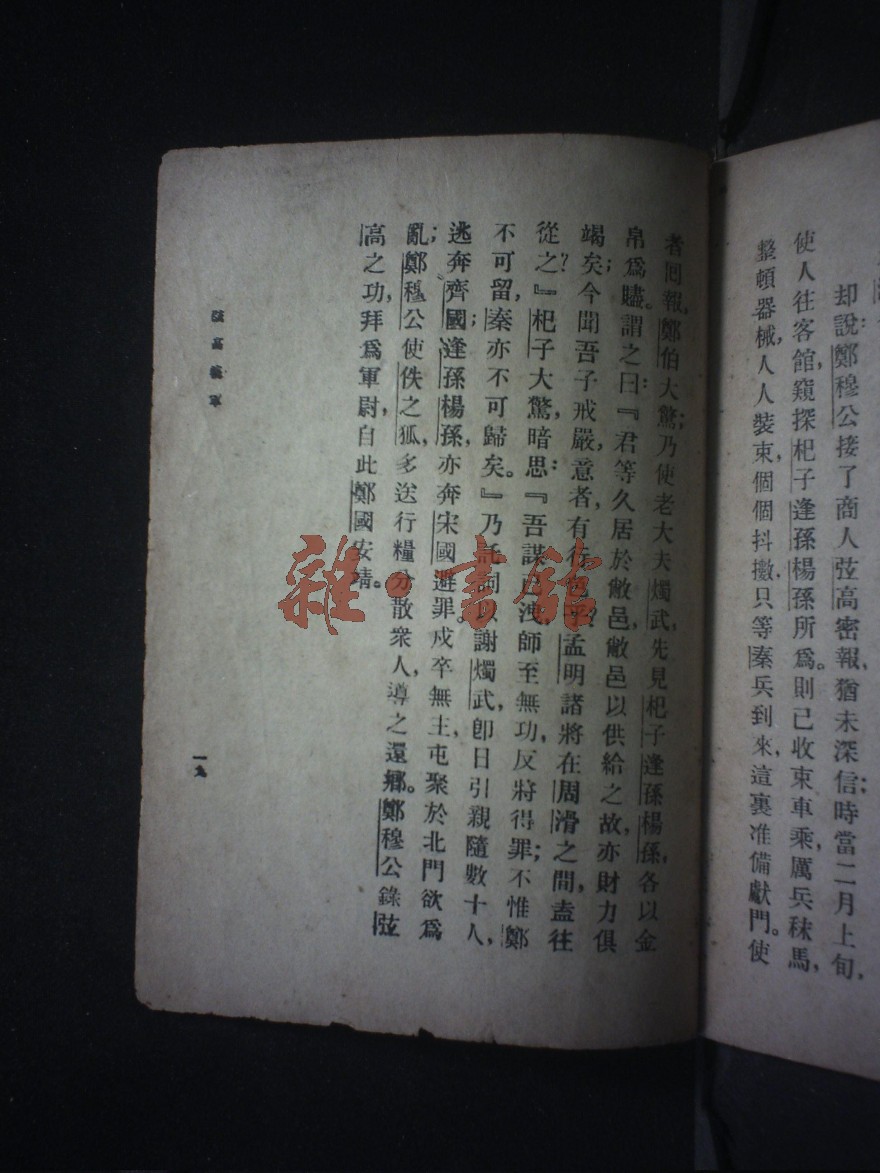 却說鄭穆公接了商人弦高密報，猶未深信；時當二月上旬，
使人往客館，窺探杞子逢孫楊孫所為。則已收束車乘，厲兵秣馬，
整頓器械，人人裝束，個個抖擻，只等秦兵到來，這裏准備獻門。使
者回報，鄭伯大驚；乃使老大夫燭武，先見杞子逢孫楊孫，各以金
帛爲贐。謂之曰：『君等久居於敝邑，敝邑以供給之故，亦財力俱
竭矣；今聞吾子戒嚴，意者，有行色乎？孟明諸將在周滑之間，盍往
從之？』杞子大驚，暗思：『吾謀已洩，師至無功，反將得罪；不惟鄭
不可留，秦亦不可歸矣。』乃託詞以謝燭武，卽日引親隨數十人，
逃奔齊國；逢孫楊孫，亦奔宋國避罪。戍卒無主，屯聚於北門，欲爲
亂；鄭穆公使佚之狐，多送行糧，分散衆人，導之還鄉。鄭穆公錄弦
高之功，拜爲軍尉，自此鄭國安靖。
弦高犒軍
一九
雜·書館